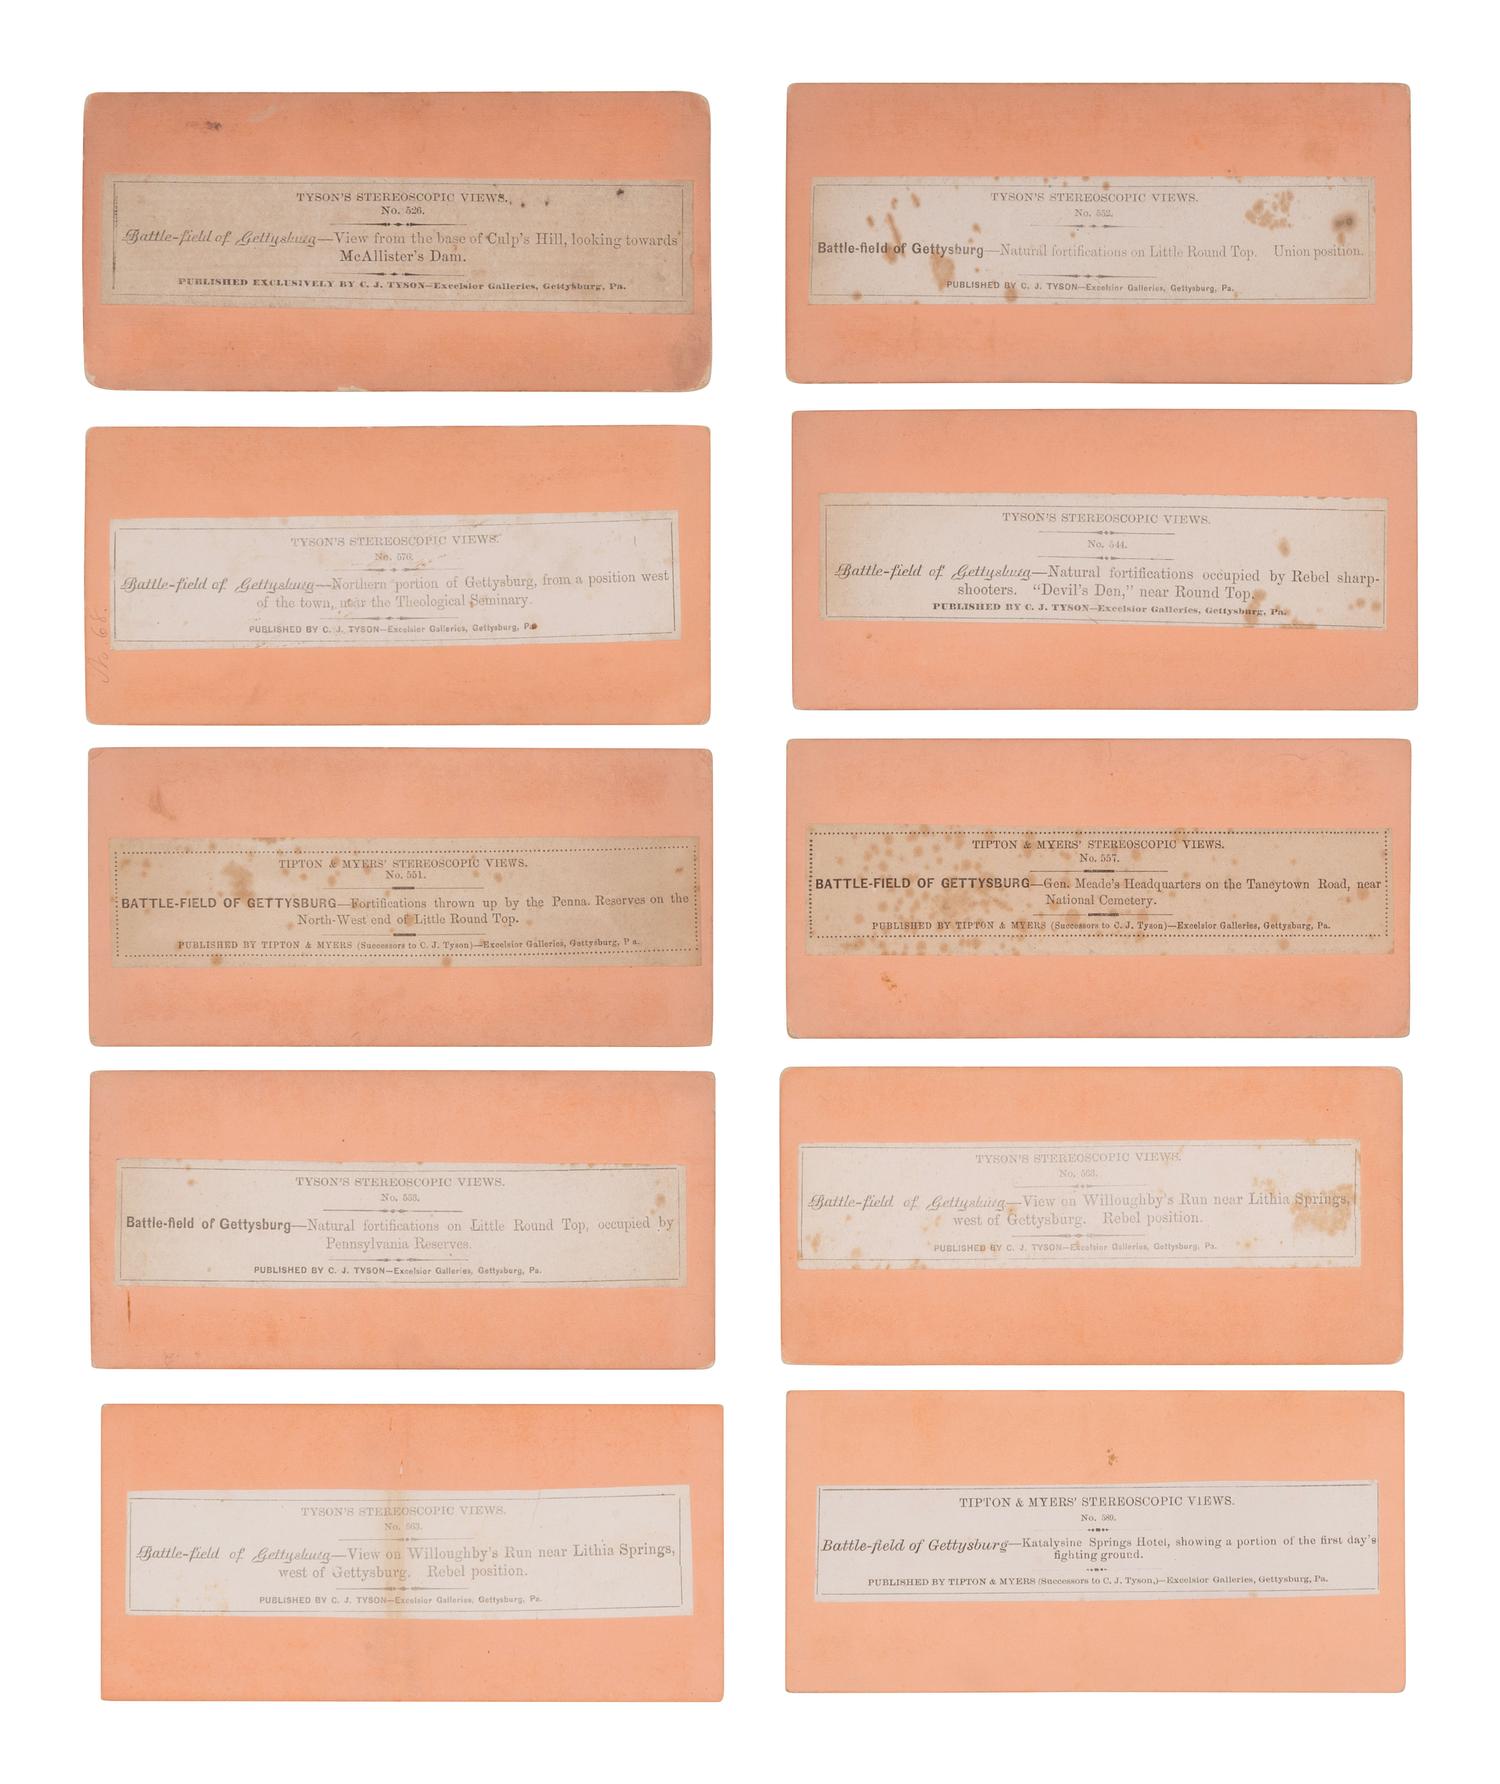 TYSON'S STEREOSCOPIC VIEWS.
No. 526.
Battle-field of Gettysburg—View from the base of Culp's Hill, looking towards
McAllister's Dam.
PUBLISHED EXCLUSIVELY BY C. J. TYSON—Excelsior Galleries, Gettysburg, Pa.
TYSON'S STEREOSCOPIC VIEWS.
No. 552.
Battle-field of Gettysburg—Natural fortifications on Little Round Top. Union position.
PUBLISHED BY C. J. TYSON—Excelsior Galleries, Gettysburg, Pa.
TYSON'S STEREOSCOPIC VIEWS.
No. 576.
Battle-field of Gettysburg—Northern portion of Gettysburg, from a position west
of the town, near the Theological Seminary.
PUBLISHED BY C. J. TYSON—Excelsior Galleries, Gettysburg, Pa
No. 68.
TYSON'S STEREOSCOPIC VIEWS.
No. 544.
Battle-field of Gettysburg—Natural fortifications occupied by Rebel sharp-
shooters. "Devil's Den," near Round Top.
PUBLISHED BY C. J. TYSON—Excelsior Galleries, Gettysburg, Pa.
TIPTON & MYERS' STEREOSCOPIC VIEWS.
No. 551.
BATTLE-FIELD OF GETTYSBURG—Fortifications thrown up by the Penna. Reserves on the
North-West end of Little Round Top.
PUBLISHED BY TIPTON & MYERS (Successors to C. J. Tyson)—Excelsior Galleries, Gettysburg, Pa.
TIPTON & MYERS' STEREOSCOPIC VIEWS.
No. 557.
BATTLE-FIELD OF GETTYSBURG—Gen. Meade's Headquarters on the Taneytown Road, near
National Cemetery.
PUBLISHED BY TIPTON & MYERS (Successors to C. J. Tyson)—Excelsior Galleries, Gettysburg, Pa.
TYSON'S STEREOSCOPIC VIEWS.
No. 553.
Battle-field of Gettysburg—Natural fortifications on Little Round Top, occupied by
Pennsylvania Reserves.
PUBLISHED BY C. J. TYSON—Excelsior Galleries, Gettysburg, Pa.
TYSON'S STEREOSCOPIC VIEWS.
No. 563.
Battle-field of Gettysburg—View on Willoughby's Run near Lithia Springs,
west of Gettysburg. Rebel position.
PUBLISHED BY C. J. TYSON—Excelsior Galleries, Gettysburg, Pa.
TYSON'S STEREOSCOPIC VIEWS.
No. 563.
Battle-field of Gettysburg—View on Willoughby's Run near Lithia Springs,
west of Gettysburg. Rebel position.
PUBLISHED BY C. J. TYSON—Excelsior Galleries, Gettysburg, Pa.
TIPTON & MYERS' STEREOSCOPIC VIEWS.
No. 589.
Battle-field of Gettysburg—Katalysine Springs Hotel, showing a portion of the first day's
fighting ground.
PUBLISHED BY TIPTON & MYERS (Successors to C. J. Tyson,)—Excelsior Galleries, Gettysburg, Pa.